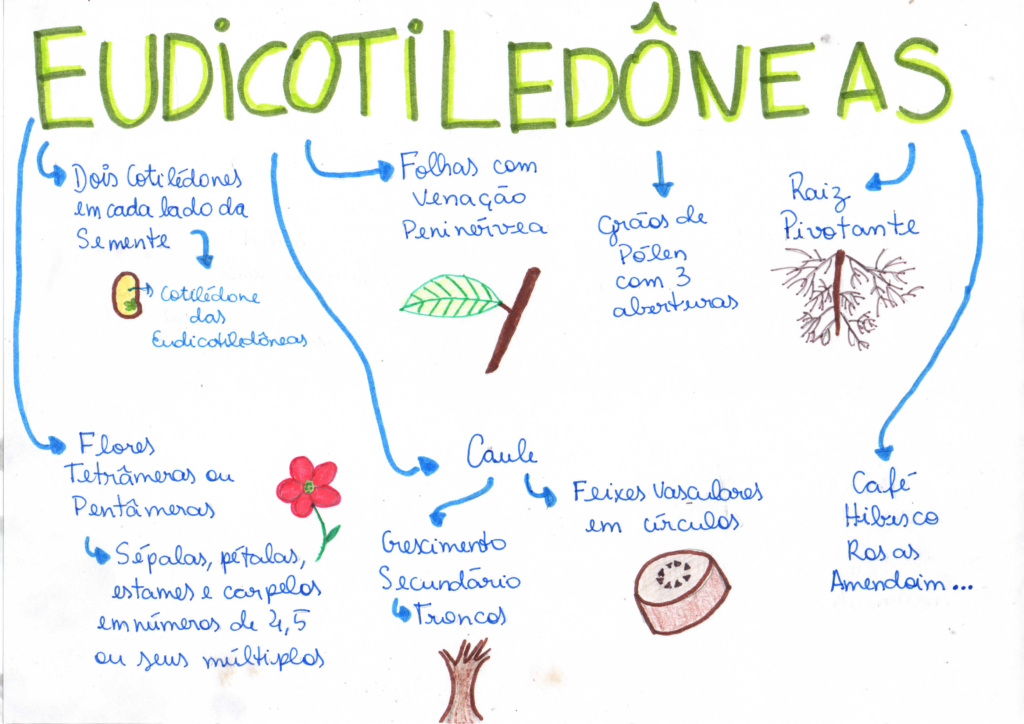 EUDICOTILEDÔNEAS
Dois Cotilédones
em cada lado da
Semente
Cotilédone
das
Eudicotiledôneas
Folhas com
Venação
Peninérvea
Grãos de
Pólen
com 3
aberturas
Raiz
Pivotante
Flores
Tetrâmeras ou
Pentâmeras
Sépalas, pétalas,
estames e carpelos
em números de 4,5
ou seus múltiplos
Caule
Crescimento
Secundário
Troncos
Feixes Vasculares
em círculos
Café
Hibisco
Rosas
Amendoim...